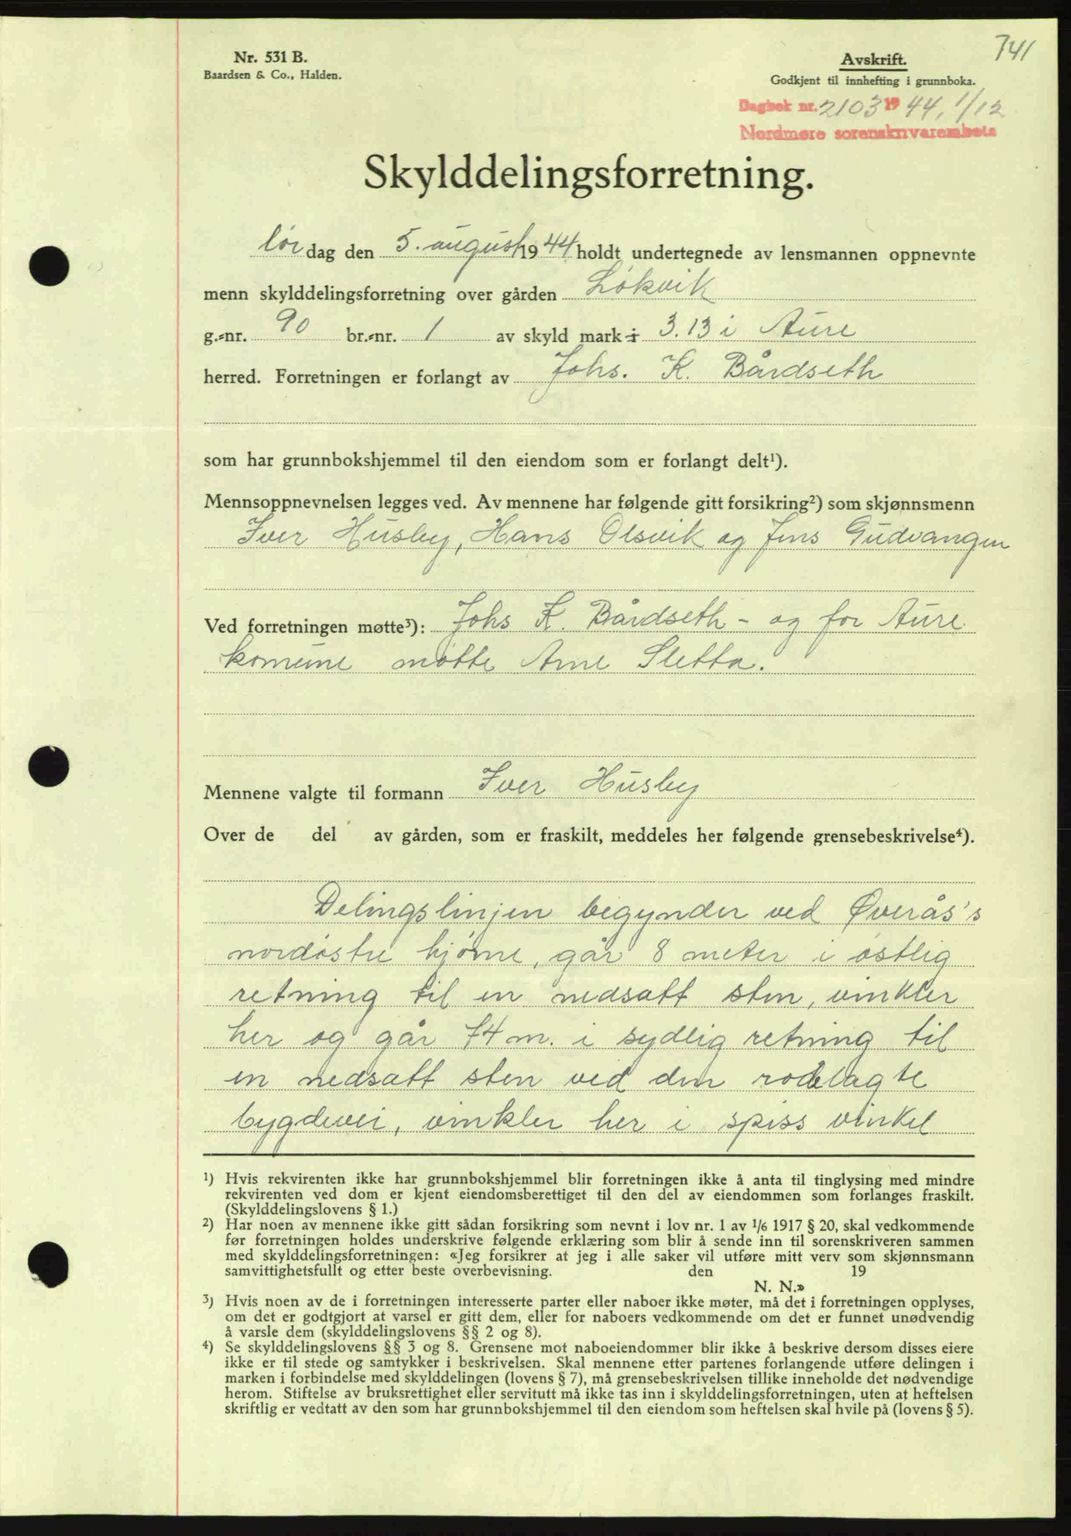 741
Nr. 531 B.
Baardsen & Co., Halden.
Avskrift.
Godkjent til innhefting i grunnboka.
Dagbok nr. 2103 1944, 1/12
Nordmøre sorenskriverembete
Skylddelingsforretning.
lørdag den 5. august 1944 holdt undertegnede av lensmannen oppnevnte
menn skylddelingsforretning over gården Løkvik
g.-nr. 90 br.-nr. 1 av skyld mark 3.13 i Aure
herred. Forretningen er forlangt av Johs. K. Bårdseth
som har grunnbokshjemmel til den eiendom som er forlangt delt¹).
Mennsoppnevnelsen legges ved. Av mennene har følgende gitt forsikring²) som skjønnsmenn
Iver Husby, Hans Olsvik og Jens Gudvangen
Ved forretningen møtte³): Johs K. Bårdseth - og for Aure
komune møtte Arne Sletta.
Mennene valgte til formann Iver Husby
Over de del av gården, som er fraskilt, meddeles her følgende grensebeskrivelse⁴).
Delingslinjen begynder ved Øverås's
nordøstre hjørne, går 8 meter i østlig
retning til en nedsatt sten, vinkler
her og går 74 m. i sydlig retning til
en nedsatt sten ved den rodelagte
bygdevei, vinkler her i spiss vinkel
¹) Hvis rekvirenten ikke har grunnbokshjemmel blir forretningen ikke å anta til tinglysing med mindre
rekvirenten ved dom er kjent eiendomsberettiget til den del av eiendommen som forlanges fraskilt.
(Skylddelingslovens § 1.)
²) Har noen av mennene ikke gitt sådan forsikring som nevnt i lov nr. 1 av 1/6 1917 § 20, skal vedkommende
før forretningen holdes underskrive følgende erklæring som blir å sende inn til sorenskriveren sammen
med skylddelingsforretningen: «Jeg forsikrer at jeg i alle saker vil utføre mitt verv som skjønnsmann
samvittighetsfullt og etter beste overbevisning. den 19
N. N.»
³) Hvis noen av de i forretningen interesserte parter eller naboer ikke møter, må det i forretningen opplyses,
om det er godtgjort at varsel er gitt dem, eller for naboers vedkommende om det er funnet unødvendig
å varsle dem (skylddelingslovens §§ 2 og 8).
⁴) Se skylddelingslovens §§ 3 og 8. Grensene mot naboeiendommer blir ikke å beskrive dersom disses eiere
ikke er til stede og samtykker i beskrivelsen. Skal mennene etter partenes forlangende utføre delingen i
marken i forbindelse med skylddelingen (lovens § 7), må grensebeskrivelsen tillike inneholde det nødvendige
herom. Stiftelse av bruksrettighet eller servitutt må ikke tas inn i skylddelingsforretningen, uten at heftelsen
skriftlig er vedtatt av den som har grunnbokshjemmel til den eiendom som heftelsen skal hvile på (lovens § 5).